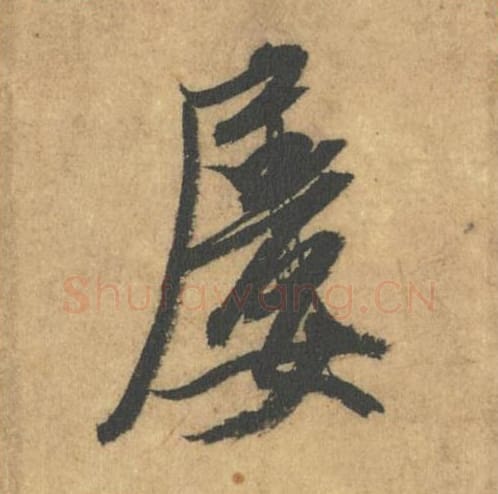 屢
Shufawang.CN